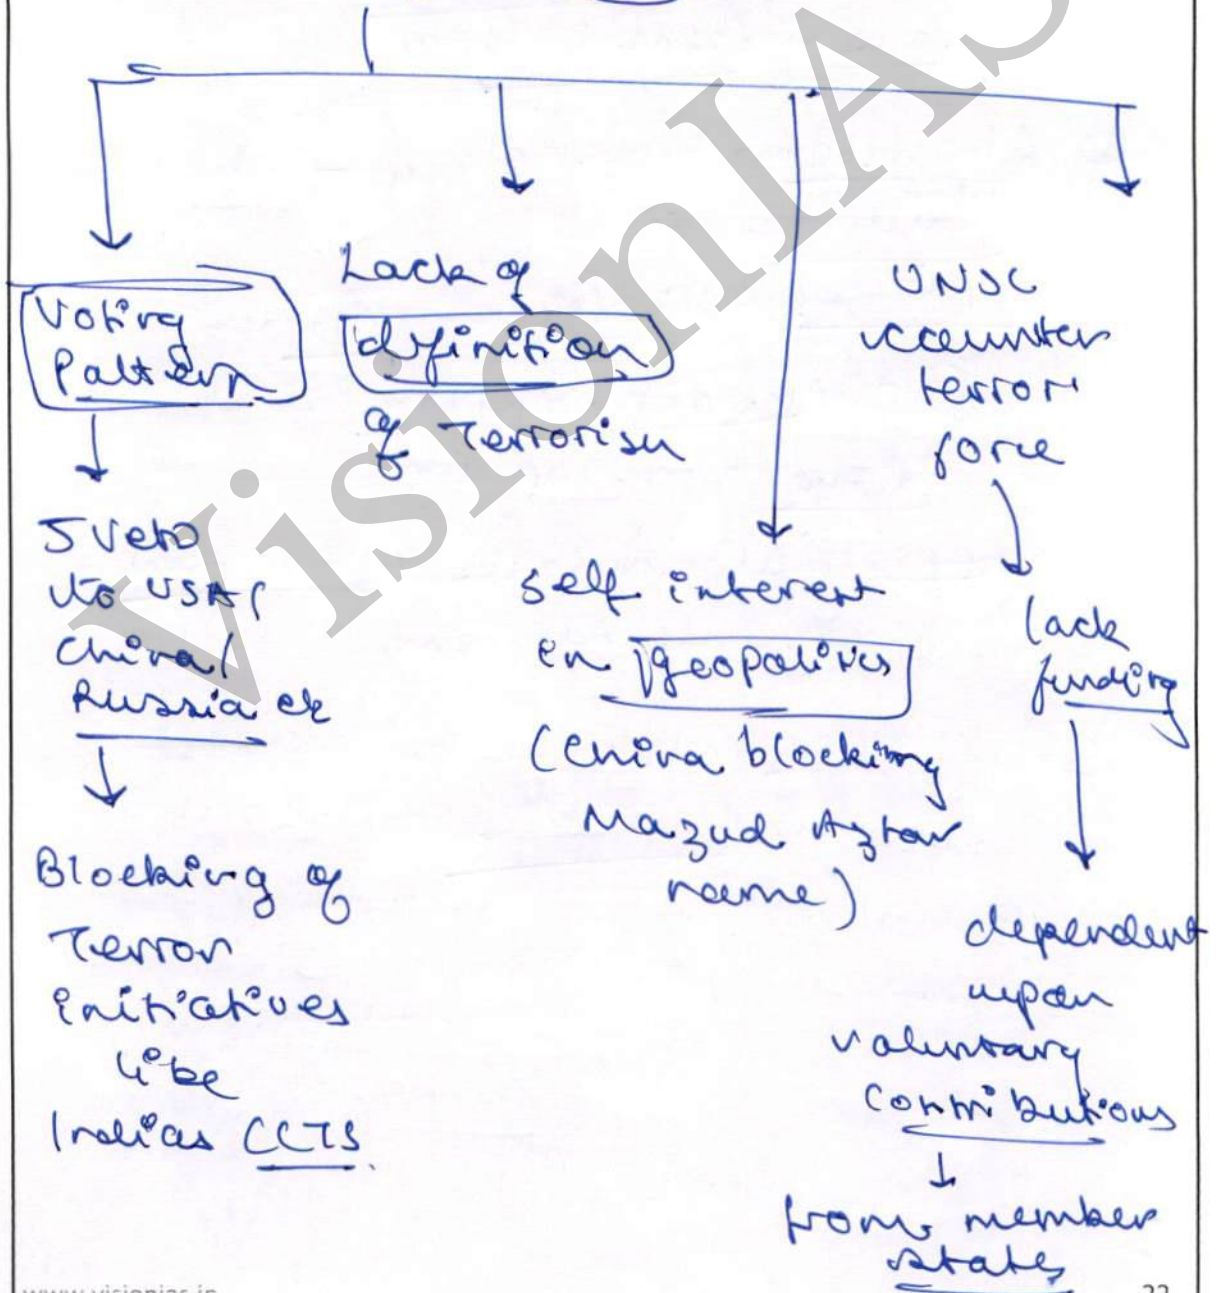 Voting
Pattern
5 Veto
to USA/
China/
Russia etc
Blocking of
Terror
initiatives
like
Indias CCTS
Lack of
definition
of Terrorism
self interest
in geopolitics
(China blocking
Mazud Azhar
name)
UNSC
counter
terror
force
lack
funding
dependent
upon
voluntary
contributions
from member
states
VisionIAS
www.visionias.in
22